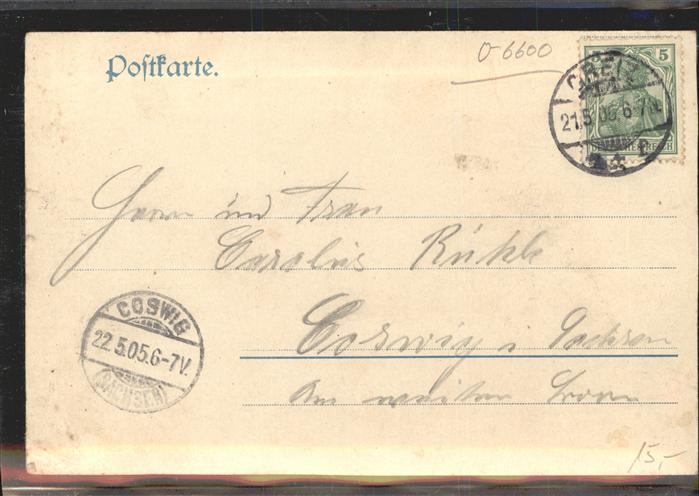 Postkarte.
O-6600
5
GREIZ
21.5.05.6-7V.
DEUTSCHES REICH
Herrn und Frau
Carolus Rühle
Coswig i Sachsen
COSWIG
22.5.05.6-7V.
(SACHSEN)
Am
15,-